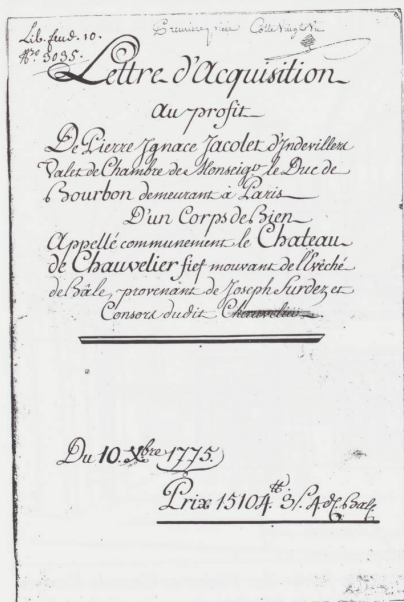 Lib. feud. 10.
N.ro 3035.
Première pièce
Lettre d'Acquisition
au profit
De Pierre Ignace Jacolet d'Indevillers
Valet de Chambre de Monseigr. le Duc de
Bourbon demeurant à Paris
D'un Corps de Bien
Appellé communement le Chateau
de Chauvelier fief mouvant de l'Evêché
de Bâle, provenant de Joseph Surdez et
Consors dudit Chauvelier
Du 10. Xbre 1775.
Prix 15104.tt 3/. 4 d. Bale